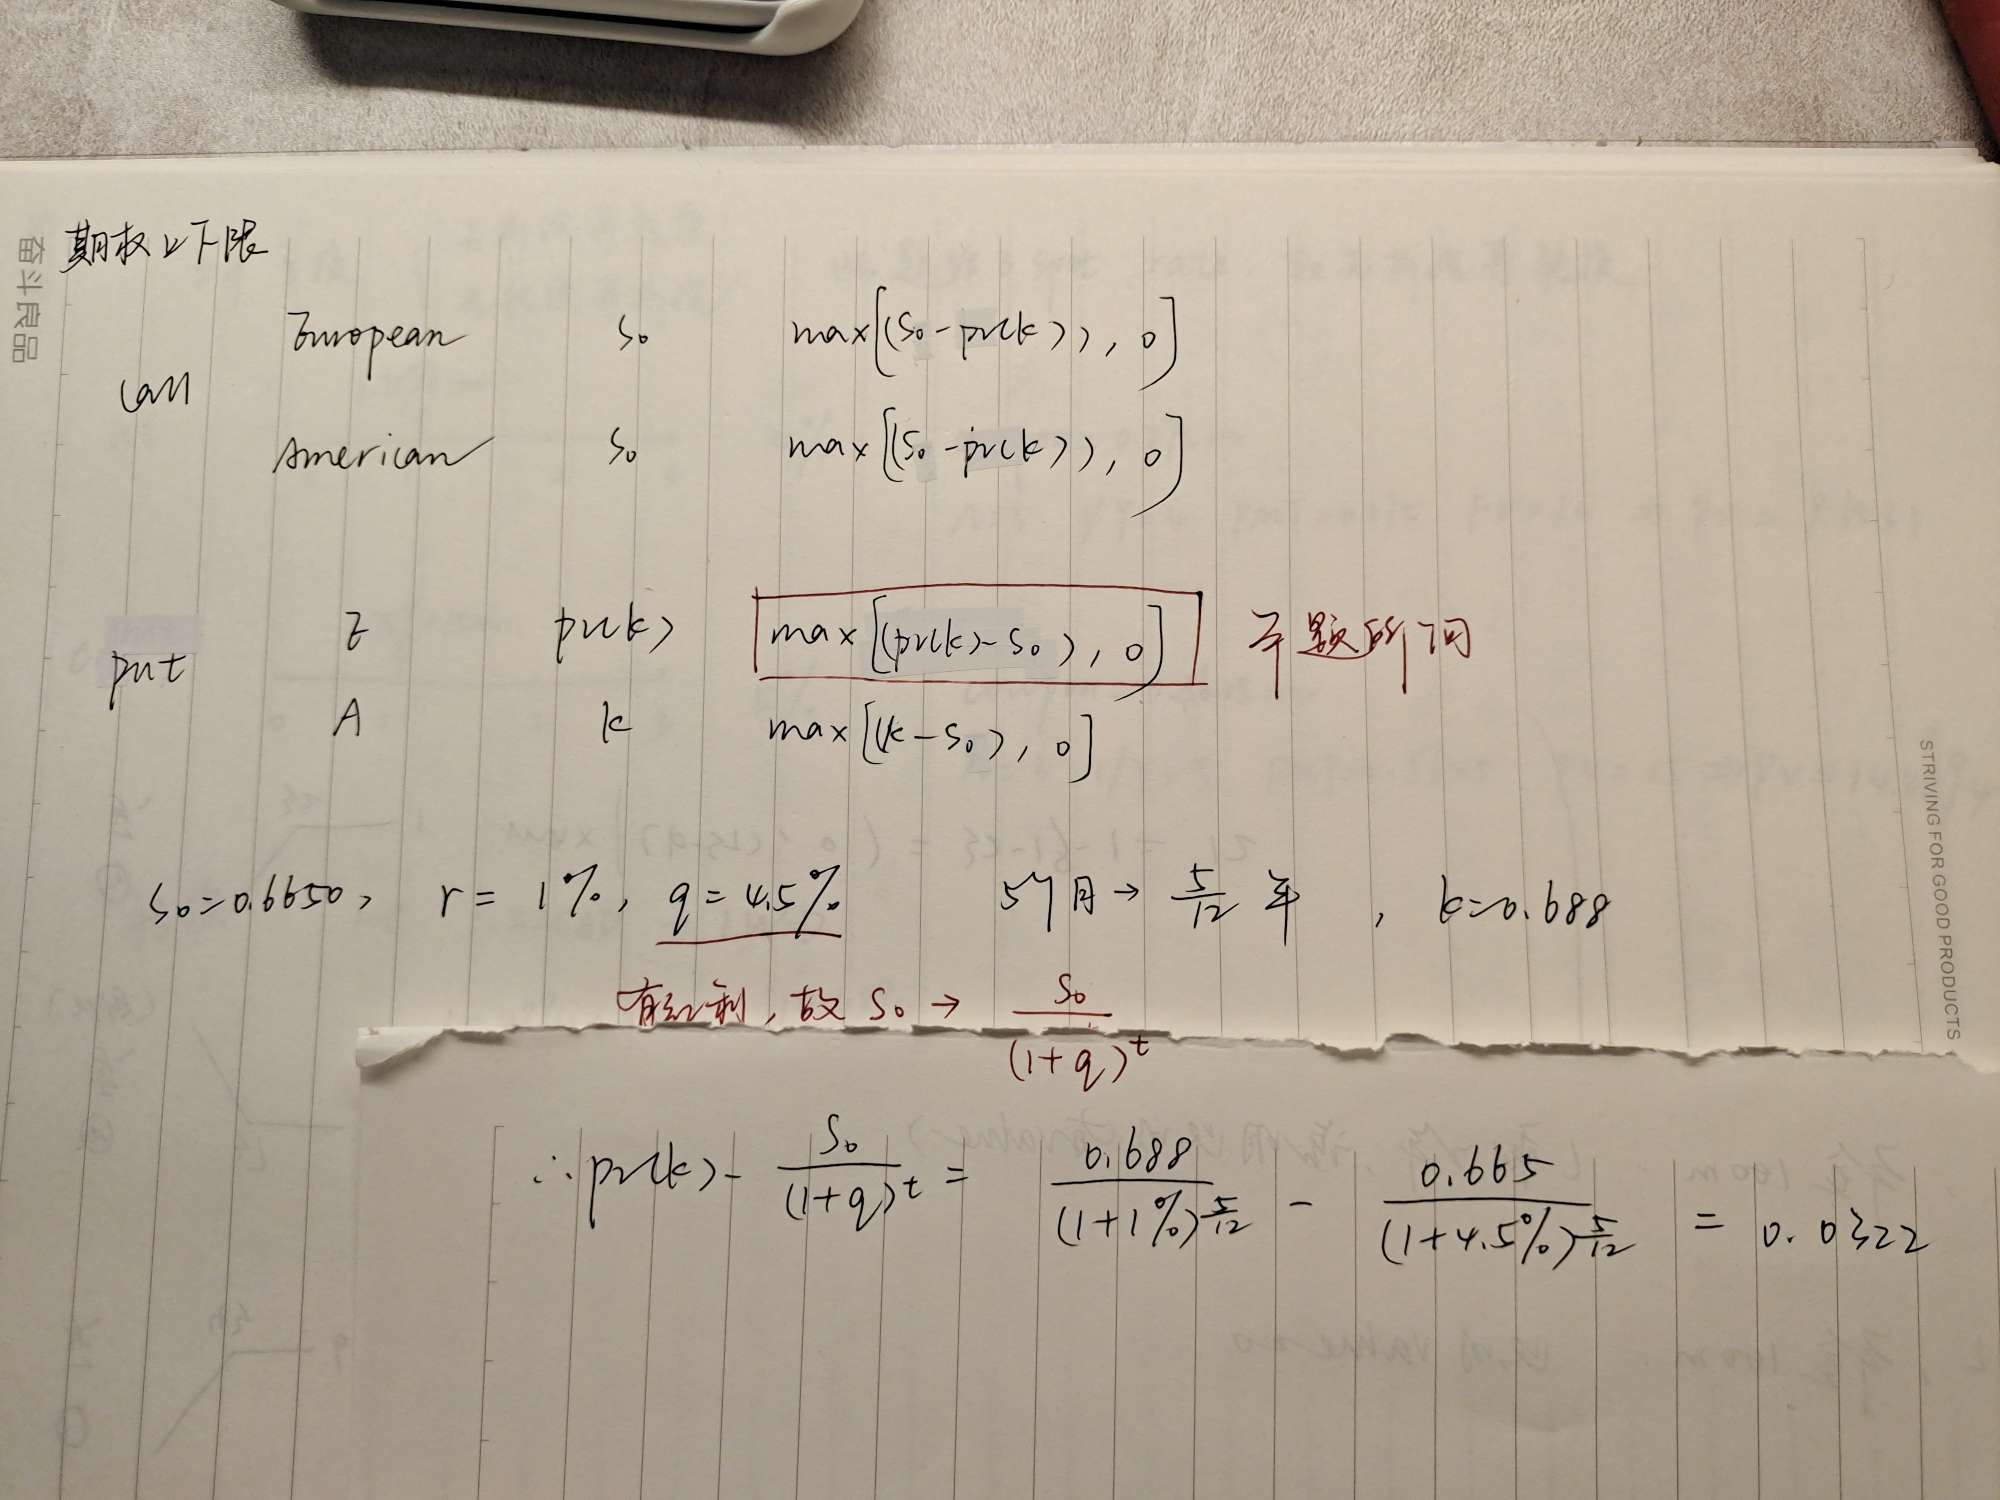 期权上下限
奋斗良品
European S₀ max[(S₀-pv(k)), 0]
Call
American S₀ max[(S₀-pv(k)), 0]
E pv(k) max[(pv(k)-S₀), 0] 本题所问
put
A k max[(k-S₀), 0]
S₀=0.6650, r= 1%, q=4.5% 5个月→ 5/12 年, k=0.688
有红利, 故 S₀ → S₀/(1+q)^t
∴ pv(k) - S₀/(1+q)^t = 0.688/(1+1%)^5/12 - 0.665/(1+4.5%)^5/12 = 0.0322
STRIVING FOR GOOD PRODUCTS